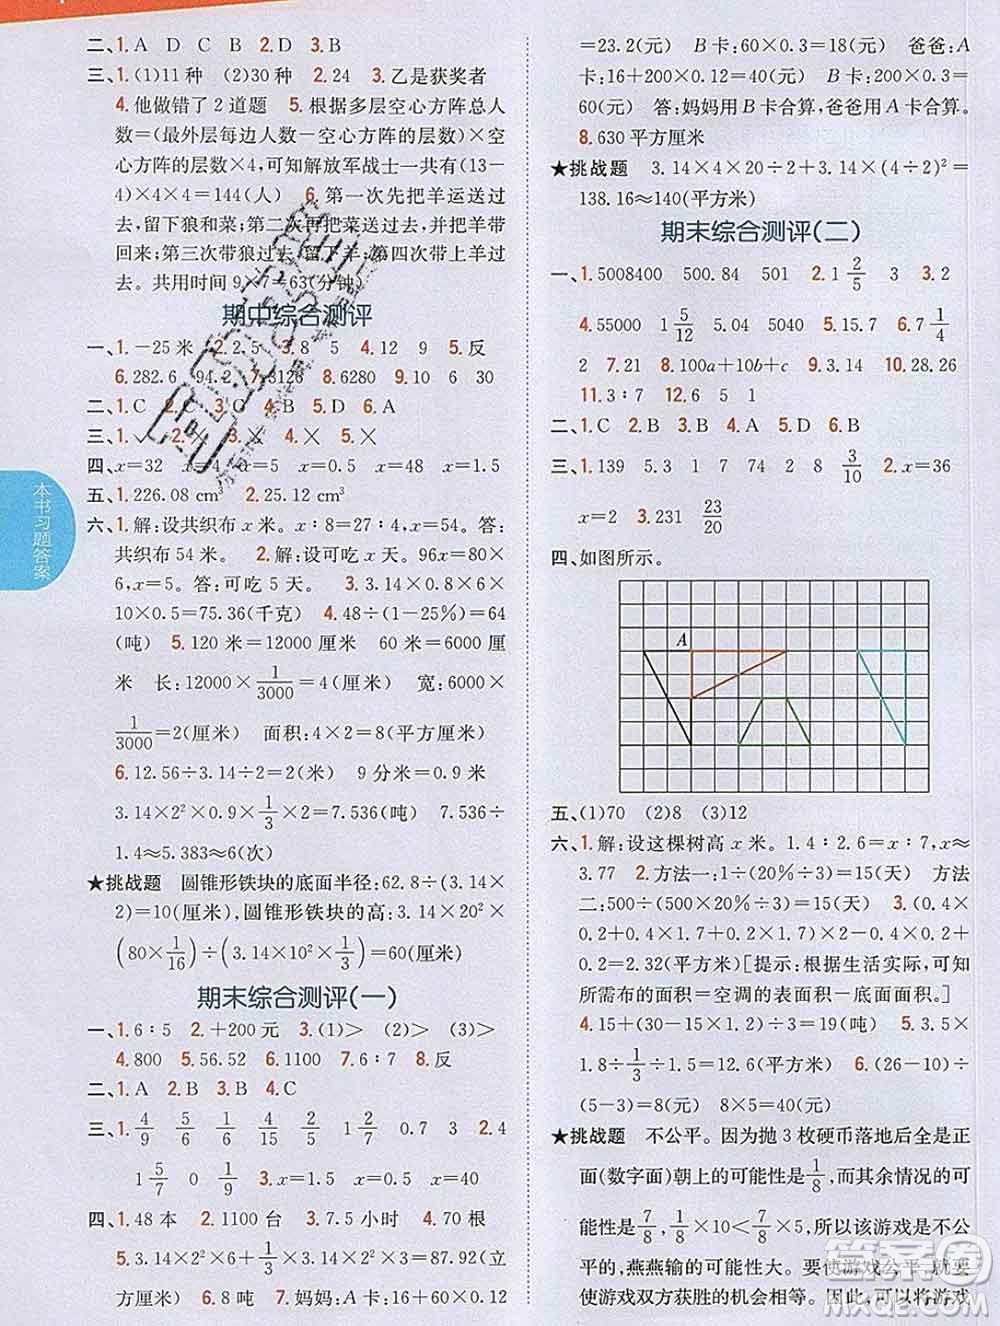 二、1. A D C B 2. D 3. B
三、1. (1)11 种 (2)30 种 2. 24 3. 乙是获奖者
4. 他做错了 2 道题 5. 根据多层空心方阵总人
数=(最外层每边人数-空心方阵的层数)×空
心方阵的层数×4,可知解放军战士一共有(13-
4)×4×4=144(人) 6. 第一次先把羊运送过
去,留下狼和菜;第二次再把菜送过去,并把羊带
回来;第三次带狼过去,留下羊;第四次带羊过
去。共用时间 9×7=63(分钟)
期中综合测评
一、1. -25 米 2. 2.5 3. 8 5 4. 12 9 5. 反
6. 282.6 94.2 7. 3126 8. 6280 9. 10 6 30
二、1. C 2. C 3. C 4. B 5. D 6. A
三、1. ✓
四、x=32 x=4 x=5 x=48 x=1.5
五、1. 226.08 cm³ 2. 25.12 cm³
六、1. 解:设共织布 x 米。x∶8=27∶4,x=54。答:
共织布 54 米。 2. 解:设可吃 x 天。96x=80×
6,x=5。答:可吃 5 天。 3. 3.14×(4÷2)²×6×
10×0.5÷5=75.36(千克) 4. 48÷(1-25%)=64
(吨) 5. 120 米=12000 厘米 60 米=6000 厘
米 长:12000×1/3000=4(厘米) 宽:6000×
1/3000=2(厘米) 面积:4×2=8(平方厘米)
6. 12.56÷3.14÷2=2(米) 9 分米=0.9 米
3.14×2²×0.9×1/3×2=7.536(吨) 7.536÷
1.4≈5.383≈6(次)
★挑战题 圆锥形铁块的底面半径:62.8÷(3.14×
2)=10(厘米),圆锥形铁块的高:3.14×10²×
(80×1/16)÷(3.14×10²×1/3)=60(厘米)
期末综合测评(一)
一、1. 6∶5 2. +200 元 3. (1)> (2)> (3)>
4. 800 5. 56.52 6. 1100 7. 6∶7 8. 反
二、1. A 2. B 3. B 4. C
三、1. 4/9 5/6 2/9 2/5 1 2/5 7/4 3 2. 4
1 5/7 0 1/9 3. x=1.5 x=4 x=0.5
四、1. 48 本 2. 1100 台 3. 7.5 小时 4. 70 根
5. 3.14×2²×6+1/3×3.14×2²×3=87.92(立
方厘米) 6. 8 吨 7. 妈妈:A 卡:16+60×0.12
=23.2(元) B 卡:60×0.3=18(元) 爸爸:A
卡:16+200×0.12=40(元) B 卡:200×0.3=
60(元) 答:妈妈用 B 卡合算,爸爸用 A 卡合算。
8. 630 平方厘米
★挑战题 3.14×4×20÷2+3.14×(4÷2)²=
138.16≈140(平方米)
期末综合测评(二)
一、1. 5008400 500.84 501 2. 1 2/5 3 3. 2
4. 55000 1 5/12 5.04 5040 5. 15.7 6. 7 1/4
2 7. 21 8. 100a+10b+c 9. 96 10. 12
11. 3∶7 12. 6 5 1
二、1. C 2. B 3. B 4. D 5. D 6. B
三、1. 139 5.3 1 7 74 2 8 3/10 2. x=36
x=2 3. 231 23/20
四、如图所示。
A
五、(1)70 (2)8 (3)12
六、1. 解:设这棵树高 x 米。1.4∶2.6=x∶7,x≈
3.77 2. 方法一:1÷(20%÷3)=15(天) 方法
二:500÷(500×20%÷3)=15(天) 3. (0.4×
0.2+0.4×1.7+0.2×1.7)×2+0.4×0.2-0.4×
0.2=2.32(平方米)[提示:根据生活实际,可知
所需布的面积=空调的表面积-底面积。]
4. 15+(30-15×1.2)÷3=19(吨) 5. 3.5×
1.8÷1/3÷1.5=12.6(平方米) 6. (26-10)÷
(5-3)=8(元) 8×5=40(元)
★挑战题 不公平。因为抛 3 枚硬币落地后全是正
面(数字面)朝上的可能性是1/8,而其余情况的可
能性是7/8,7/8×10<7/8×5,所以该游戏是不公
平的,燕燕输的可能性大。要使游戏公平,就要
使游戏双方获胜的机会相等。因此,可以将游戏
本书习题答案
答案圈